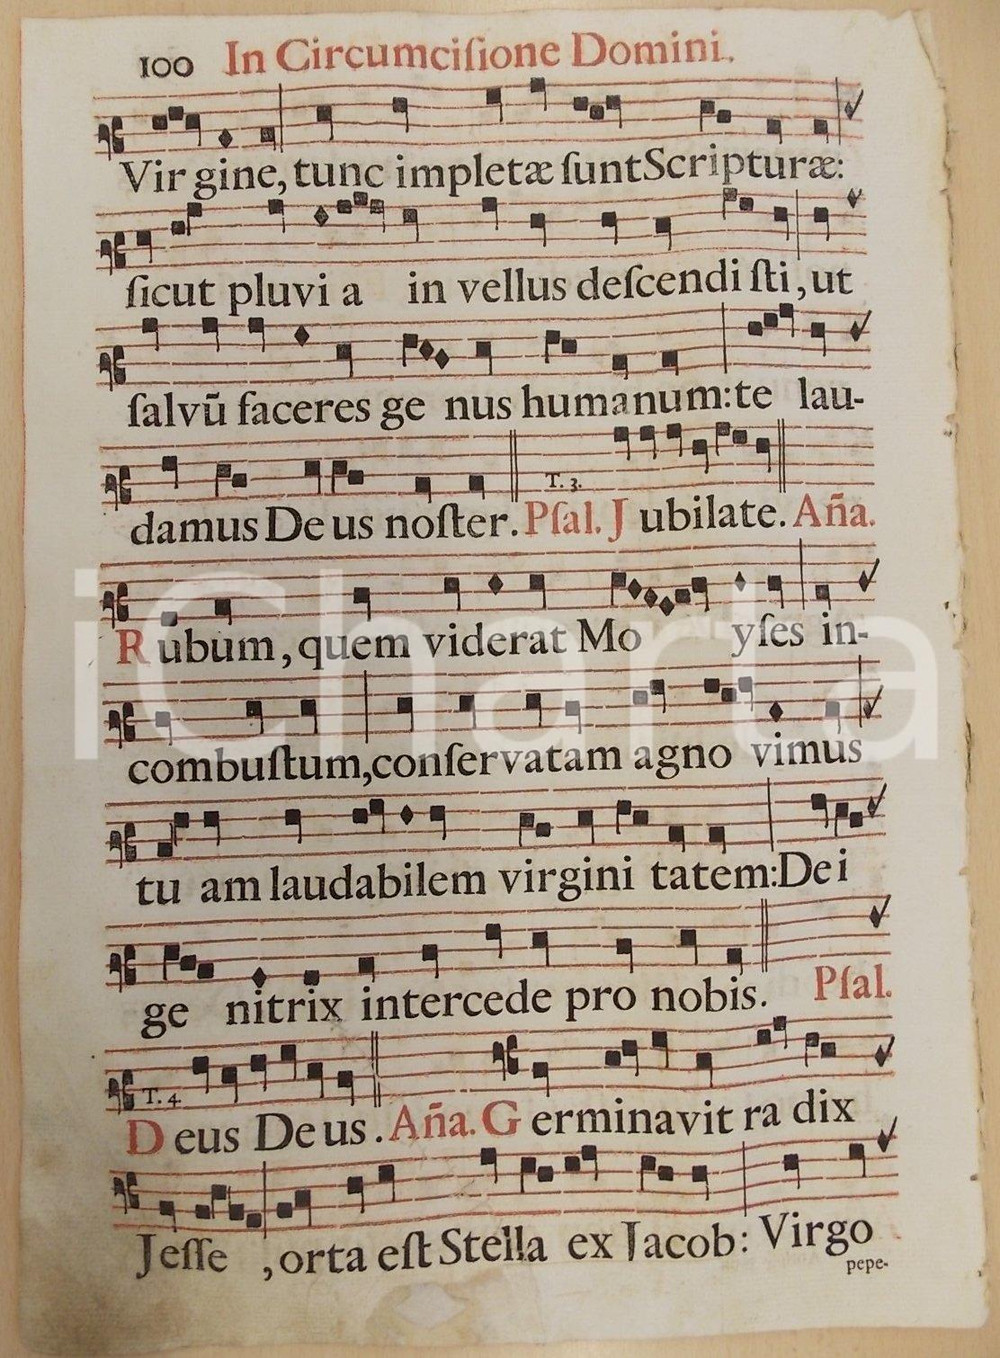 100 In Circumciſione Domini.
Vir gine, tunc impletæ ſunt Scripturæ:
ſicut pluvi a in vellus deſcendi ſti, ut
ſalvū faceres ge nus humanum: te lau-
T. 3.
damus De us noſter. Pſal. J ubilate. Añа.
R ubum, quem viderat Mo yſes in-
combuſtum, conſervatam agno vimus
tu am laudabilem virgini tatem: De i
ge nitrix intercede pro nobis. Pſal.
T. 4
D eus De us. Aña. G erminavit ra dix
Jeſſe , orta eſt Stella ex Jacob: Virgo
pepe-
iCharta